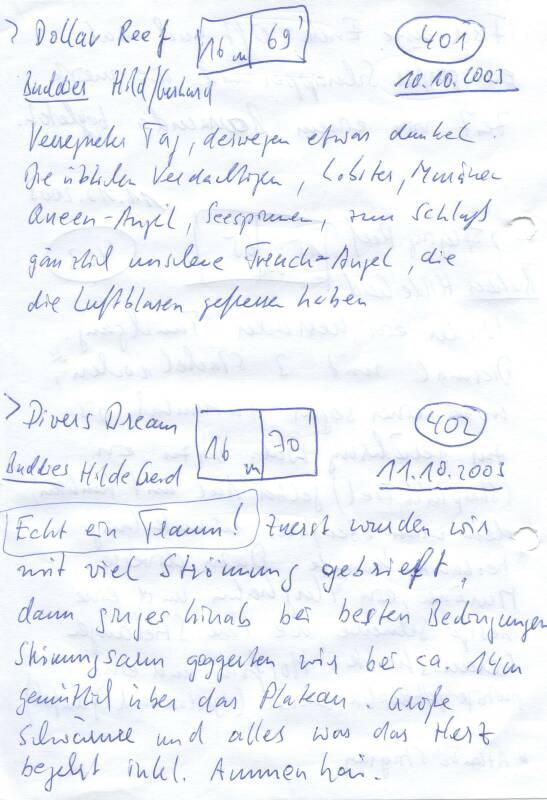 > Dollar Reef 16 m 69' 401
Buddies Hild/Gerhard 10.10.2003
Verregneter Tag, deswegen etwas dunkel.
Die üblichen Verdächtigen, Lobster, Muränen
Queen-Angel, Seespinnen, zum Schluß
gänzlich unscheue French-Angel, die
die Luftblasen gefressen haben
> Divers Dream 16 m 70' 402
Buddies Hilde Gerd 11.10.2003
Echt ein Traum! Zuerst wurden wir
mit viel Strömung gebrieft,
dann ging es hinab bei besten Bedingungen
Strömungsarm wir bei ca. 14m
gemütlich über das Plateau. Große
Schwärme und alles was das Herz
begehrt inkl. Ammenhai.